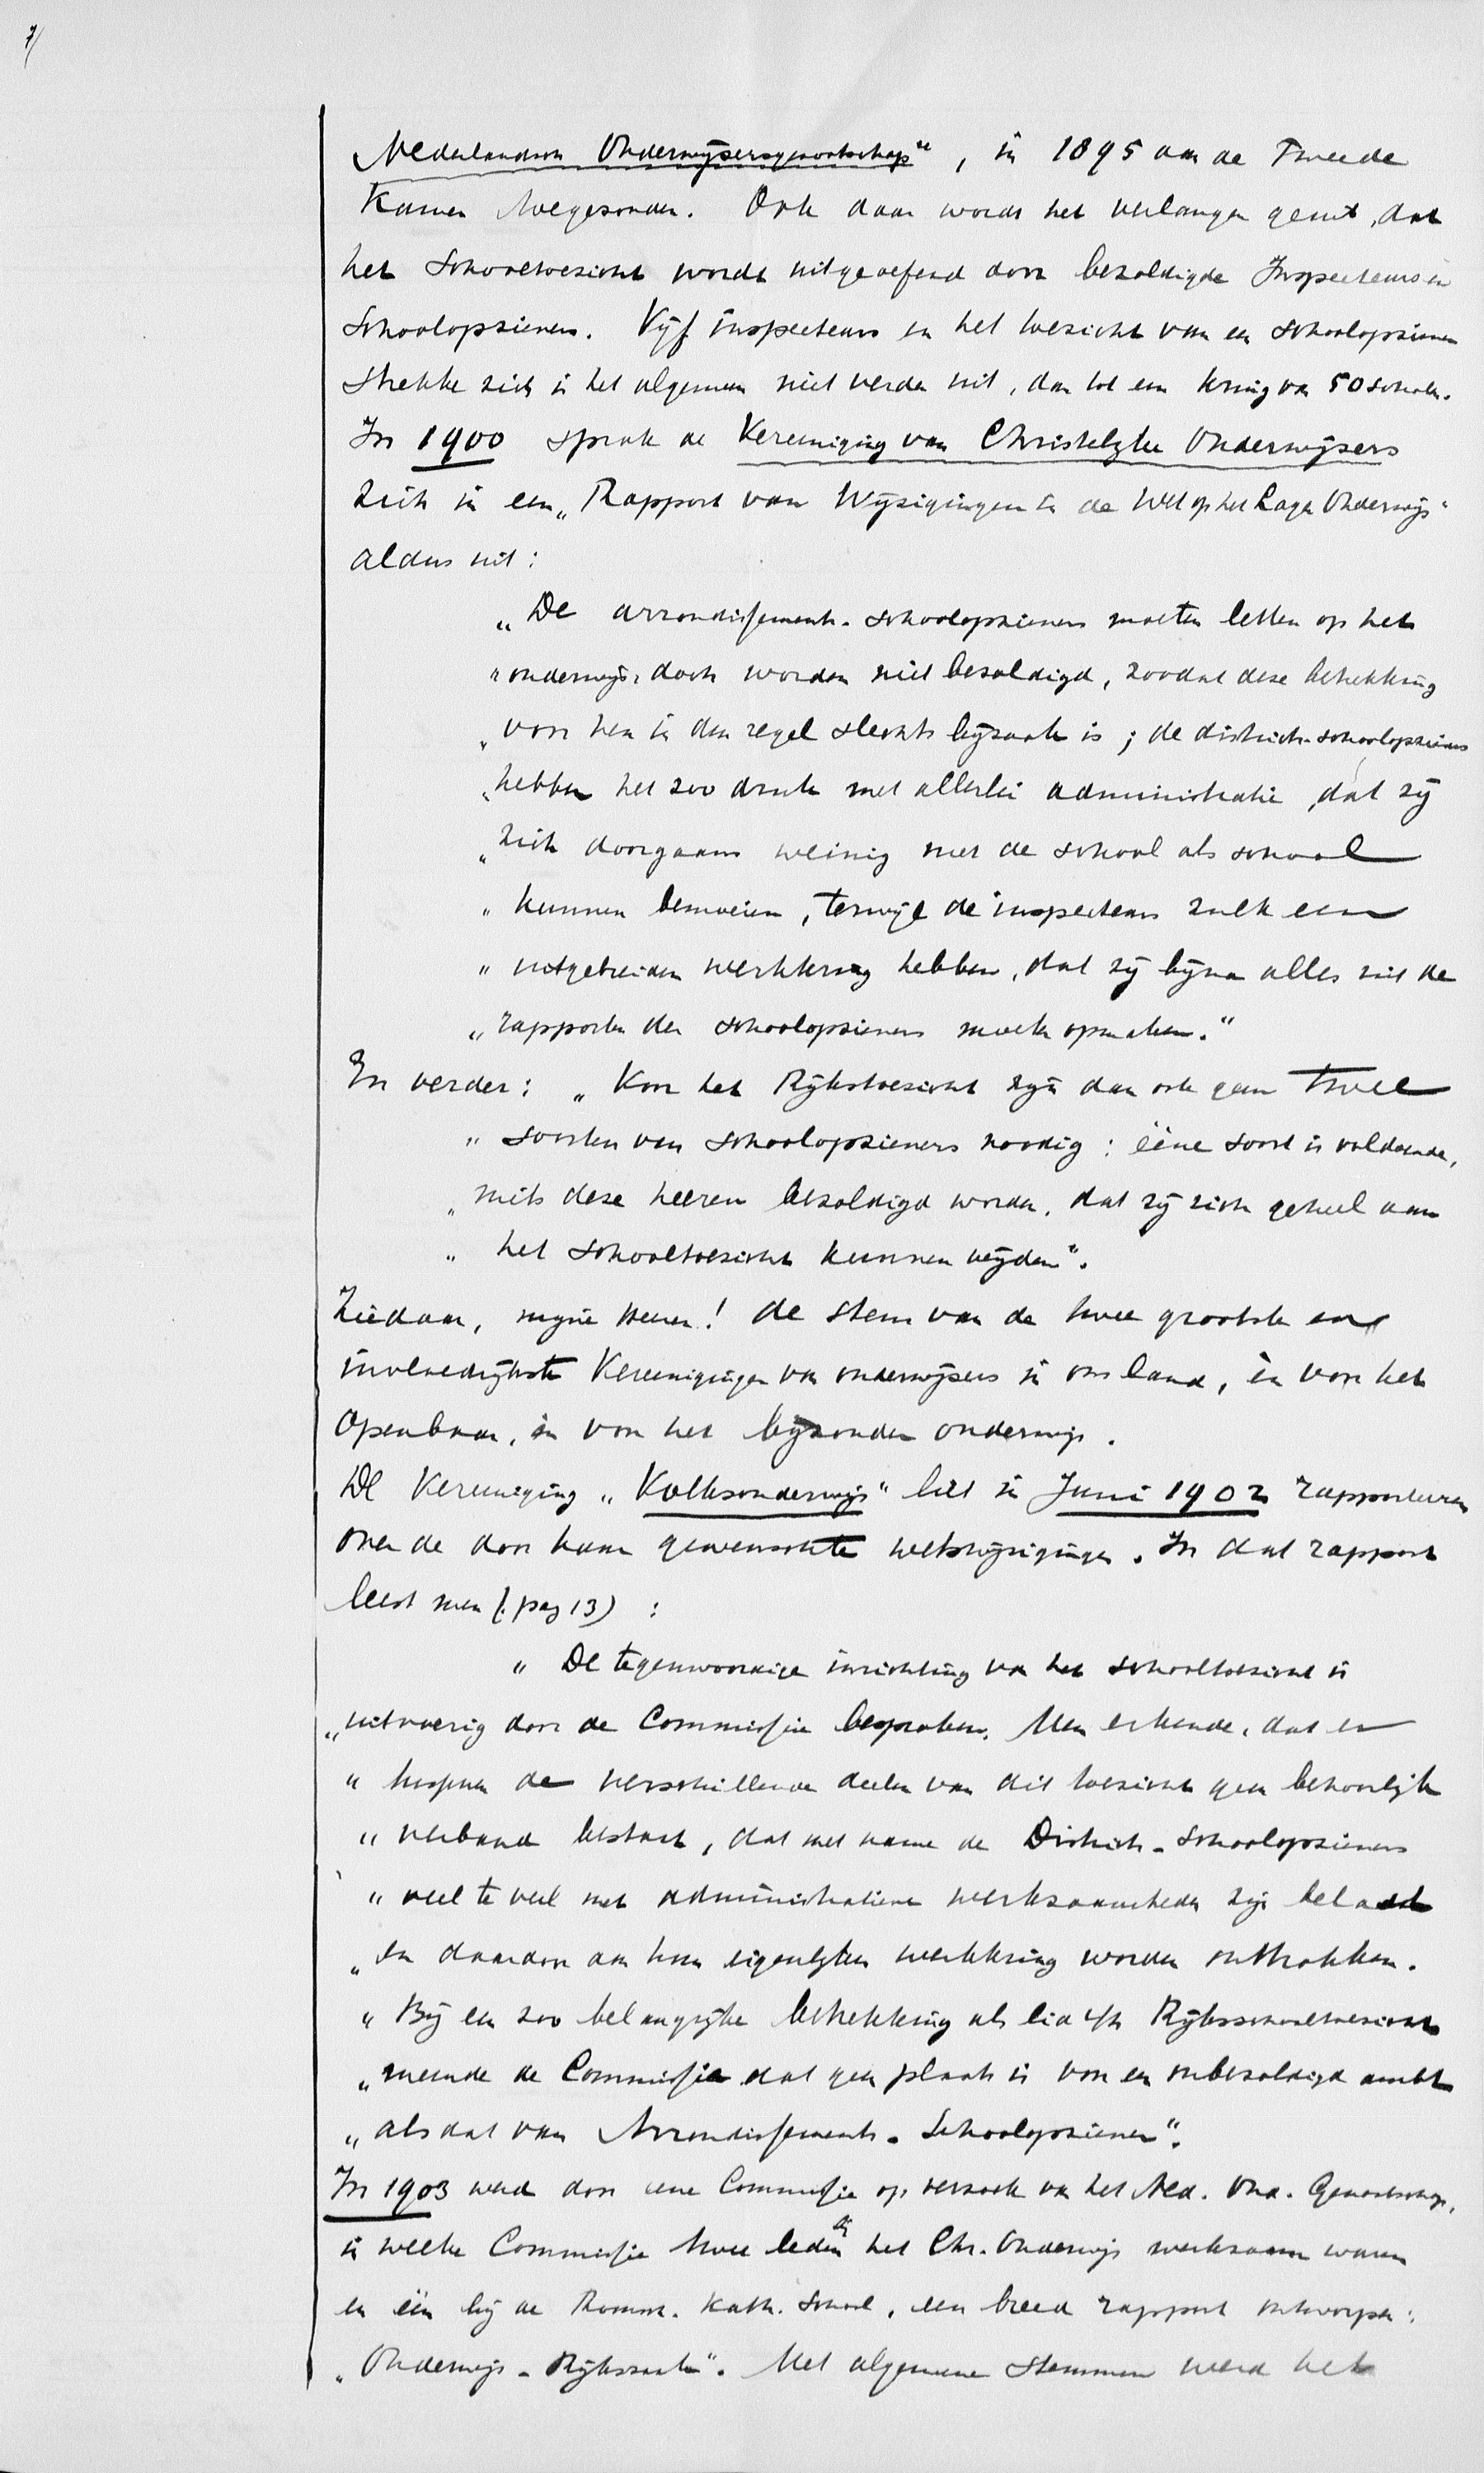 7/
Nederlandsch Onderwijzersgenootschap", in 1895 aan de Tweede
Kamer toegezonden. Ook daar wordt het verlangen geuit, dat
het Schooltoezicht wordt uitgeoefend door bezoldigde Inspecteurs en
Schoolopzieners. Vijf inspecteurs en het toezicht van een schoolopziener
strekke zich in het algemeen niet verder uit, dan tot een kring van 50 scholen.
In 1900 sprak de Vereeniging van Christelijke Onderwijzers
zich in een „Rapport van Wijzigingen in de Wet op het Lager Onderwijs"
aldus uit:
„De arrondissements-schoolopzieners moeten letten op het
„onderwijs, doch worden niet bezoldigd, zoodat deze betrekking
„voor hen in den regel slechts bijzaak is; de districts-schoolopzieners
„hebben het zoo druk met allerlei administratie, dat zij
„zich doorgaans weinig met de school als school
„kunnen bemoeien, terwijl de inspecteurs zulk een
„uitgebreiden werkkring hebben, dat zij bijna alles uit de
„rapporten der schoolopzieners moeten opmaken."
En verder: „Voor het Rijkstoezicht zijn dan ook geen twee
„soorten van schoolopzieners noodig: ééne soort is voldoende,
„mits deze heeren bezoldigd worden, dat zij zich geheel aan
„het schooltoezicht kunnen wijden".
Ziedaar, mijne Heeren! de stem van de twee grootste en
invloedrijkste Vereenigingen van onderwijzers in ons land, èn voor het
Openbaar, èn voor het bijzonder onderwijs.
De Vereeniging „Volksonderwijs" liet in Juni 1902 rapporteeren
over de door haar gewenschte wetswijzigingen. In dat rapport
leest men (: pag 13) :
„De tegenwoordige inrichting van het schooltoezicht is
„uitvoerig door de Commissie besproken. Men erkende, dat er
„tusschen de verschillende deelen van dit toezicht geen behoorlijk
„verband bestaat, dat met name de Districts-Schoolopzieners
„veel te veel met administratieve werkzaamheden zijn belast
„en daardoor aan hun eigenlijken werkkring worden onttrokken.
„Bij een zoo belangrijke betrekking als lid v/h Rijksschooltoezicht
„meende de Commissie dat geen plaats is voor een onbezoldigd ambt
„als dat van Arrondissements-Schoolopziener".
In 1903 werd door eene Commissie op verzoek van het Ned. Ond. Genootschap,
in welke Commissie twee leden bij het Chr. Onderwijs werkzaam waren
en één bij de Roomsch. Kath. School, een breed rapport ontworpen:
„Onderwijs-Rijkszaak". Met algemeene stemmen werd het